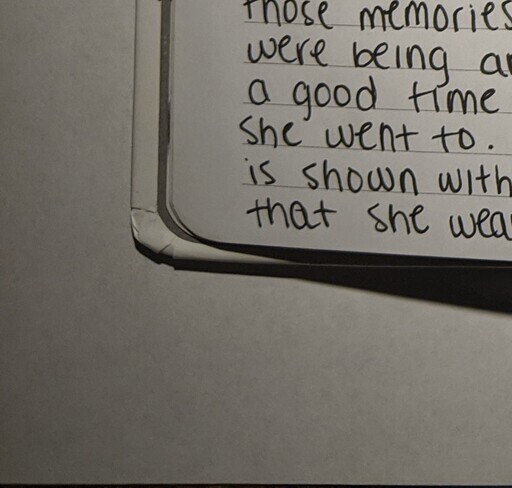 those memories
were being
a good time
she went to.
is shown with
that she